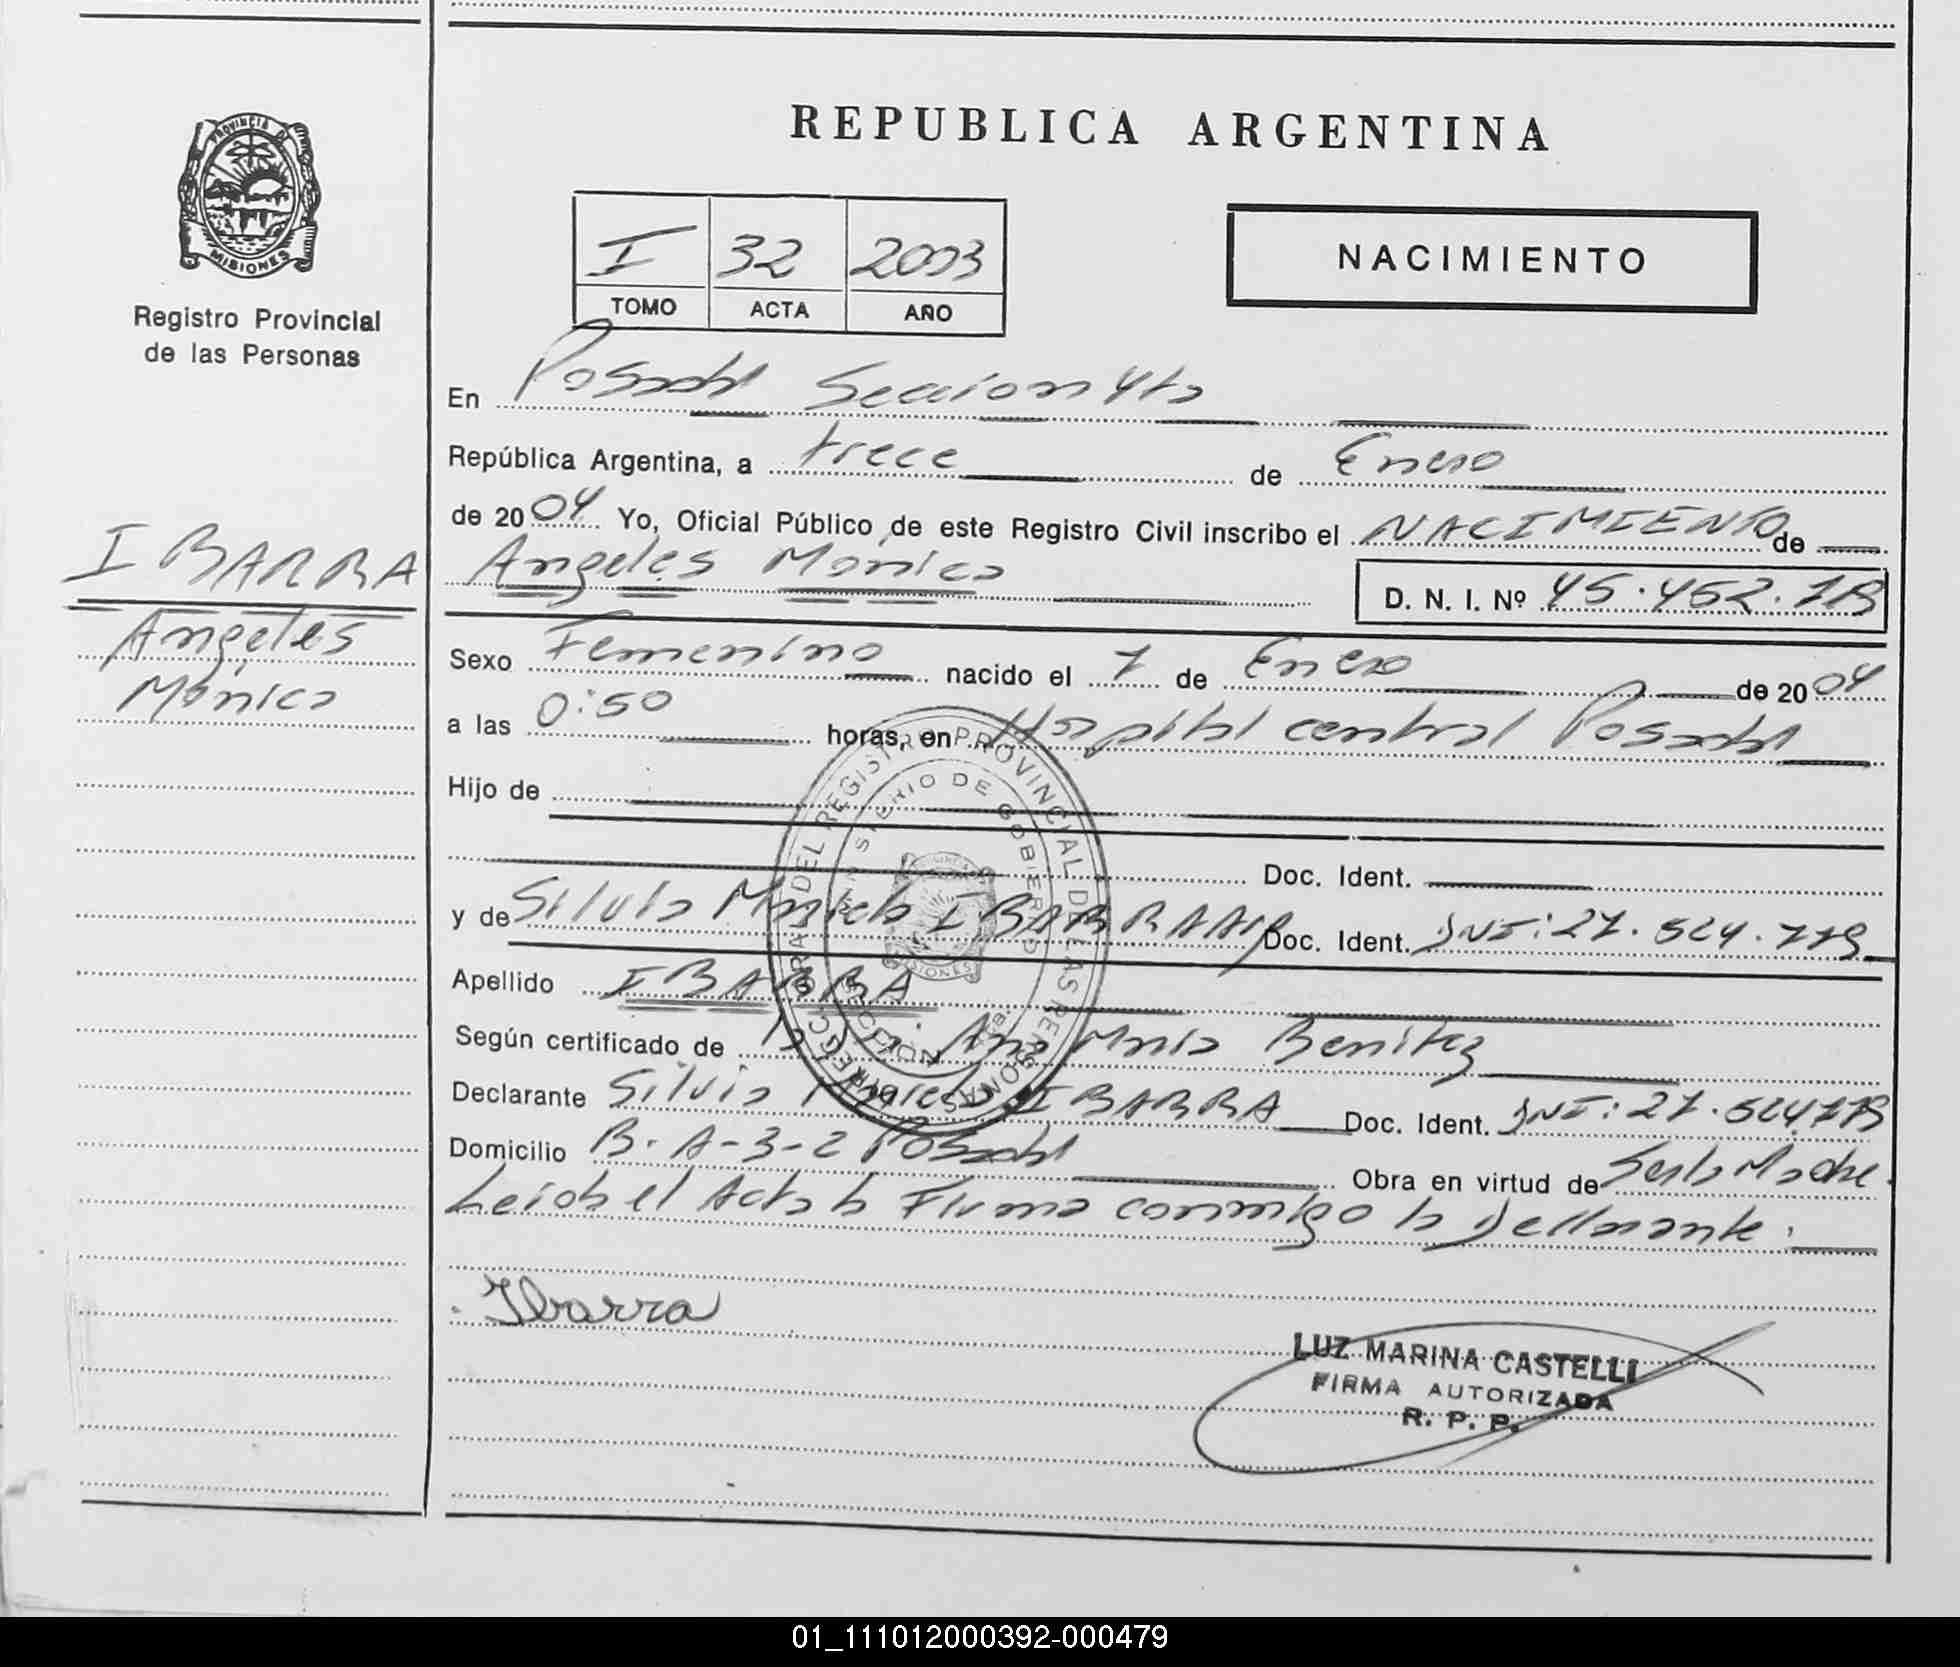 REPUBLICA ARGENTINA
PROVINCIA DE MISIONES
Registro Provincial
de las Personas
I 32 2003
TOMO ACTA AÑO
NACIMIENTO
En Posadas Seccion 4ta
República Argentina, a trece de Enero
de 2004 Yo, Oficial Público de este Registro Civil inscribo el NACIMIENTO de
Angeles Mónica D. N. I. Nº 45.452.
IBARRA
Angeles
Mónica
Sexo Femenino nacido el 7 de Enero de 2004
a las 0:50 horas, en Hospital central Posadas
Hijo de
Doc. Ident.
y de Silvia IBARRA Doc. Ident. DNI: 27.524.779
Apellido IBARRA
Según certificado de Ana María Benitez
Declarante Silvia IBARRA Doc. Ident. DNI: 27.524.779
Domicilio B. A-3-2 Posadas Obra en virtud de Ser la Madre.
Leida el Acta la Firma conmigo la Declarante.
Ibarra
LUZ MARINA CASTELLI
FIRMA AUTORIZADA
R. P. P.
01_111012000392-000479